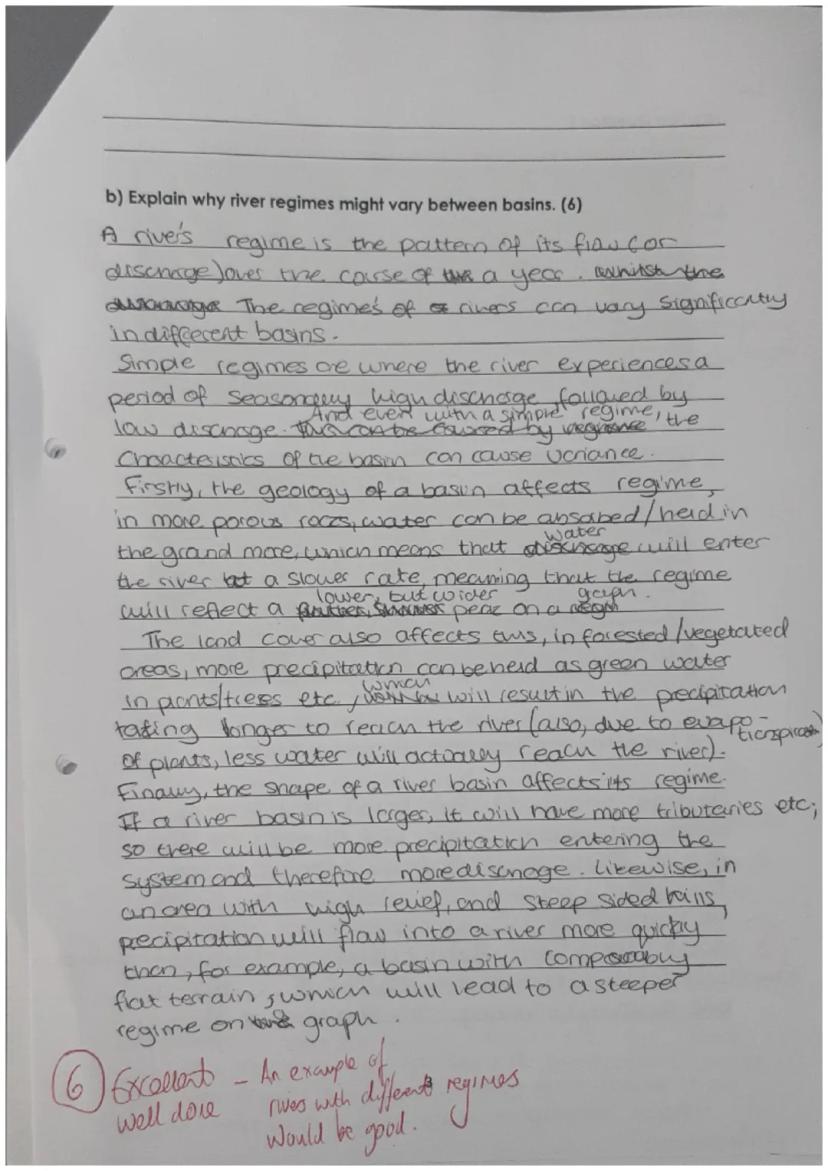 b) Explain why river regimes might vary between basins. (6)
A river's regime is the pattern of its flow (or
discharge) over the course of a year.
The regime's of rivers can vary significantly
in different basins.
Simple regimes are where the river experiences a
period of seasonally high discharge, followed by
low discharge. And even with a simple regime, the
characteristics of the basin can cause variance.
Firstly, the geology of a basin affects regime,
in more porous rocks, water can be absorbed/held in
the ground more, which means that water will enter
the river at a slower rate, meaning that the regime
will reflect a lower, but wider peak on a graph.
The land cover also affects this, in forested/vegetated
areas, more precipitation can be held as green water
in plants/trees etc, which will result in the precipitation
taking longer to reach the river (also, due to evapo-
tionspiration
of plants, less water will actually reach the river).
Finally, the shape of a river basin affects its regime.
If a river basin is larger, it will have more tributaries etc;
so there will be more precipitation entering the
system and therefore more discharge. Likewise, in
an area with high relief, and steep sided hills,
precipitation will flow into a river more quickly
than, for example, a basin with comparably
flat terrain, which will lead to a steeper
regime on graph.
6 Excellent well done
– An example of
rivers with different regimes
would be good.